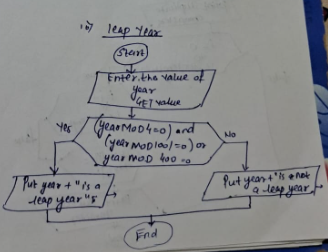 iii) leap year
Start
Enter the value of
year
GET value
(year MOD 4=0) and
(year MOD 100!=0) or
year MOD 400=0
Yes
No
Put year + "is a
leap year"
Put year + "is not
a leap year
End